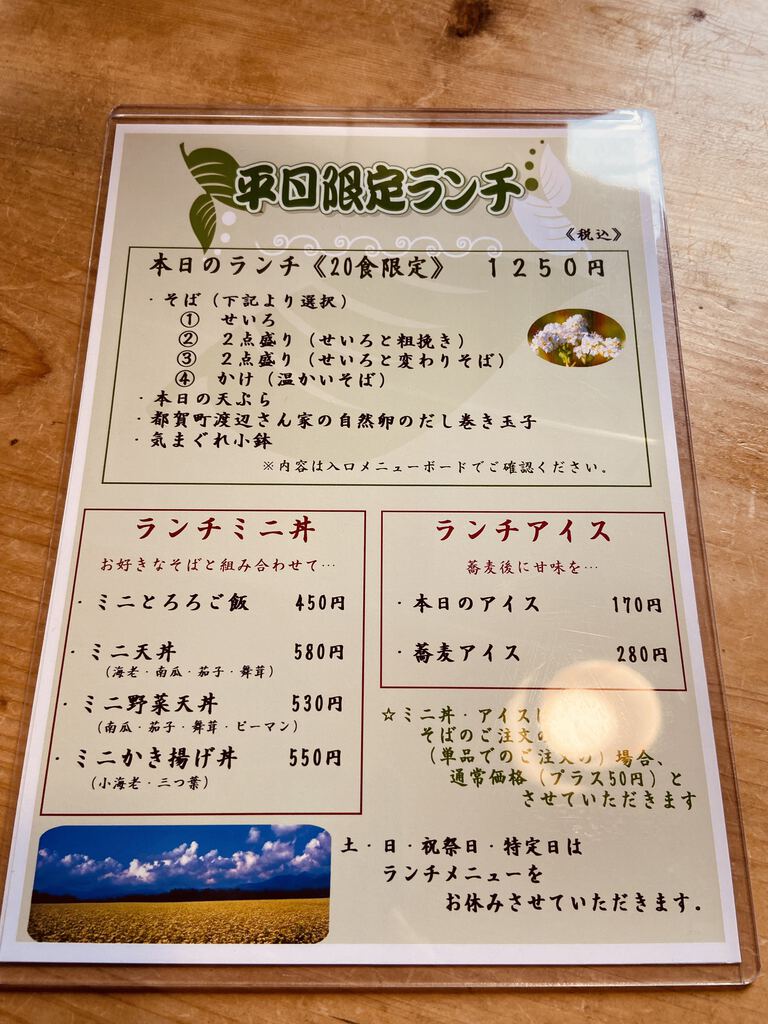 平日限定ランチ
《税込》
本日のランチ《20食限定》 1250円
・そば（下記より選択）
① せいろ
② 2点盛り（せいろと粗挽き）
③ 2点盛り（せいろと変わりそば）
④ かけ（温かいそば）
・本日の天ぷら
・都賀町渡辺さん家の自然卵のだし巻き玉子
・気まぐれ小鉢
※内容は入口メニューボードでご確認ください。
ランチミニ丼
お好きなそばと組み合わせて…
・ミニとろろご飯 450円
・ミニ天丼 580円
（海老・南瓜・茄子・舞茸）
・ミニ野菜天丼 530円
（南瓜・茄子・舞茸・ピーマン）
・ミニかき揚げ丼 550円
（小海老・三つ葉）
ランチアイス
蕎麦後に甘味を…
・本日のアイス 170円
・蕎麦アイス 280円
☆ミニ丼・アイス
そばのご注文の
（単品でのご注文の）場合、
通常価格（プラス50円）と
させていただきます
土・日・祝祭日・特定日は
ランチメニューを
お休みさせていただきます。